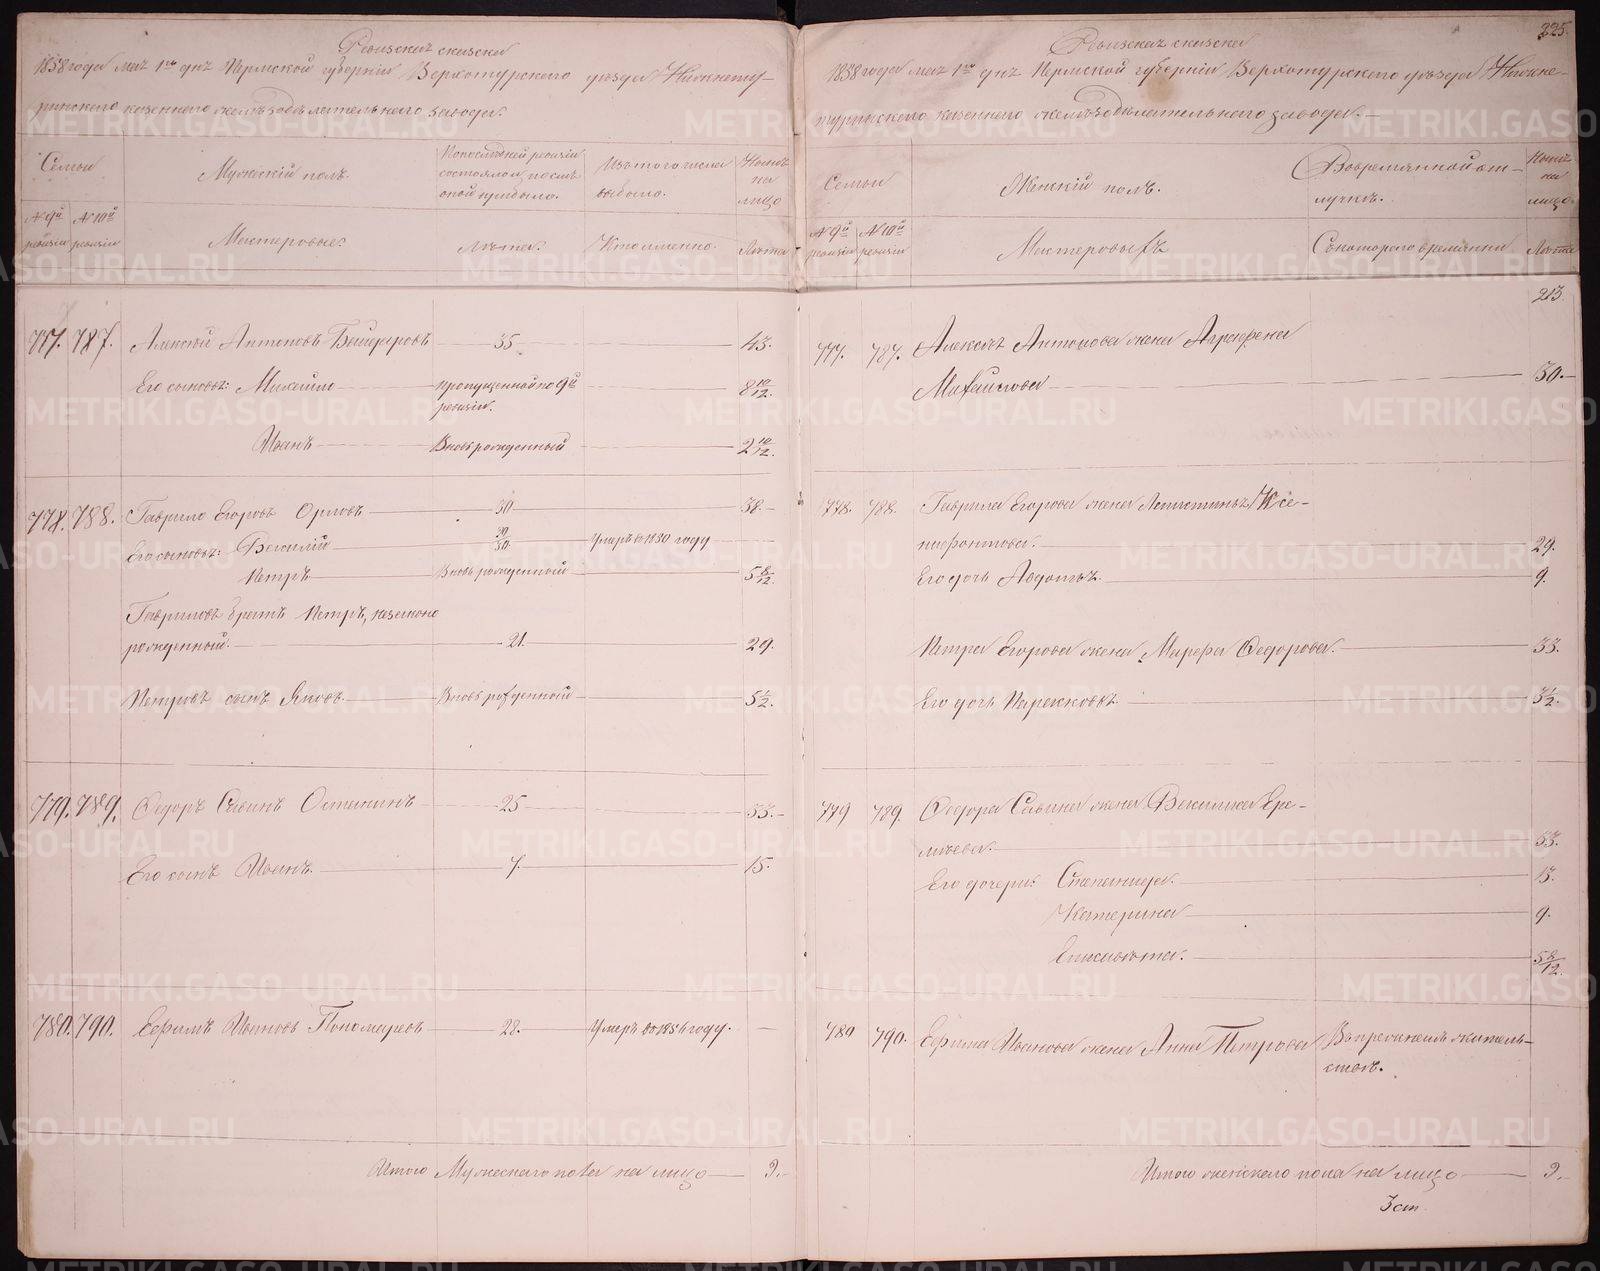 Ревизская сказка
1858 года мая 1го дня Пермской губерніи Верхотурского уѣзда Нижнету-
ринского казеннаго желѣзодѣлательнаго завода.
Семьи
Мужескій полъ.
По послѣдней ревизіи
состояло и послѣ
оной прибыло.
Изъ того числа
выбыло.
Нынѣ
на
лицо
№ 9й ревизіи
№ 10й ревизіи
Мастеровые:
Лѣта.
Кто именно.
Лѣта
777. 787. Алексѣй Антоновъ 35 43.
Его сыновья: Михайло пропущенной по 9й 8 10/12.
ревизіи.
Иванъ Вновь рожденный 2 10/12.
778. 788. Гаврило Егоровъ Орловъ 30 38.
Его сыновья: Василій Умеръ въ 1850 году
Петръ Вновь рожденный 5 8/12.
Гавриловъ братъ Петръ, незаконно
рожденный. 21. 29.
Петровъ сынъ Яковъ Вновь рожденный 5 1/2.
779. 789. Ѳедоръ Савинъ Останинъ 25 33.
Его сынъ Иванъ. 7. 15.
780. 790. Ефимъ Ивановъ Пономаревъ 28. Умеръ въ 1854 году. —
Итого Мужескаго пола на лицо 9.
225.
Ревизская сказка
1858 года мая 1го дня Пермской губерніи Верхотурского уѣзда Нижне-
туринского казеннаго желѣзодѣлательнаго завода.
Семьи
Женскій полъ.
Во временной от-
лучкѣ.
Нынѣ
на
лицо.
№ 9й ревизіи
№ 10й ревизіи
Мастеровыхъ
Съ котораго времени
Лѣта
213.
777. 787. Алексѣя Антонова жена Аграфена
Михайлова 30.
778. 788. Гаврила Егорова жена Капистинья Ксе-
нофонтова. 29.
Его дочь Авдотья. 9.
Петра Егорова жена Марефа Ѳедорова. 33.
Его дочь Парасковья. 3 1/2.
779 789. Ѳедора Савина жена Василиса Ере-
мѣева. 33.
Его дочери: Степанида. 13.
Катерина 9.
Елисавета. 5 8/12
789 790. Ефима Иванова жена Анна Петрова Въ прежнемъ житель-
ствѣ.
Итого женскаго пола на лицо 9.